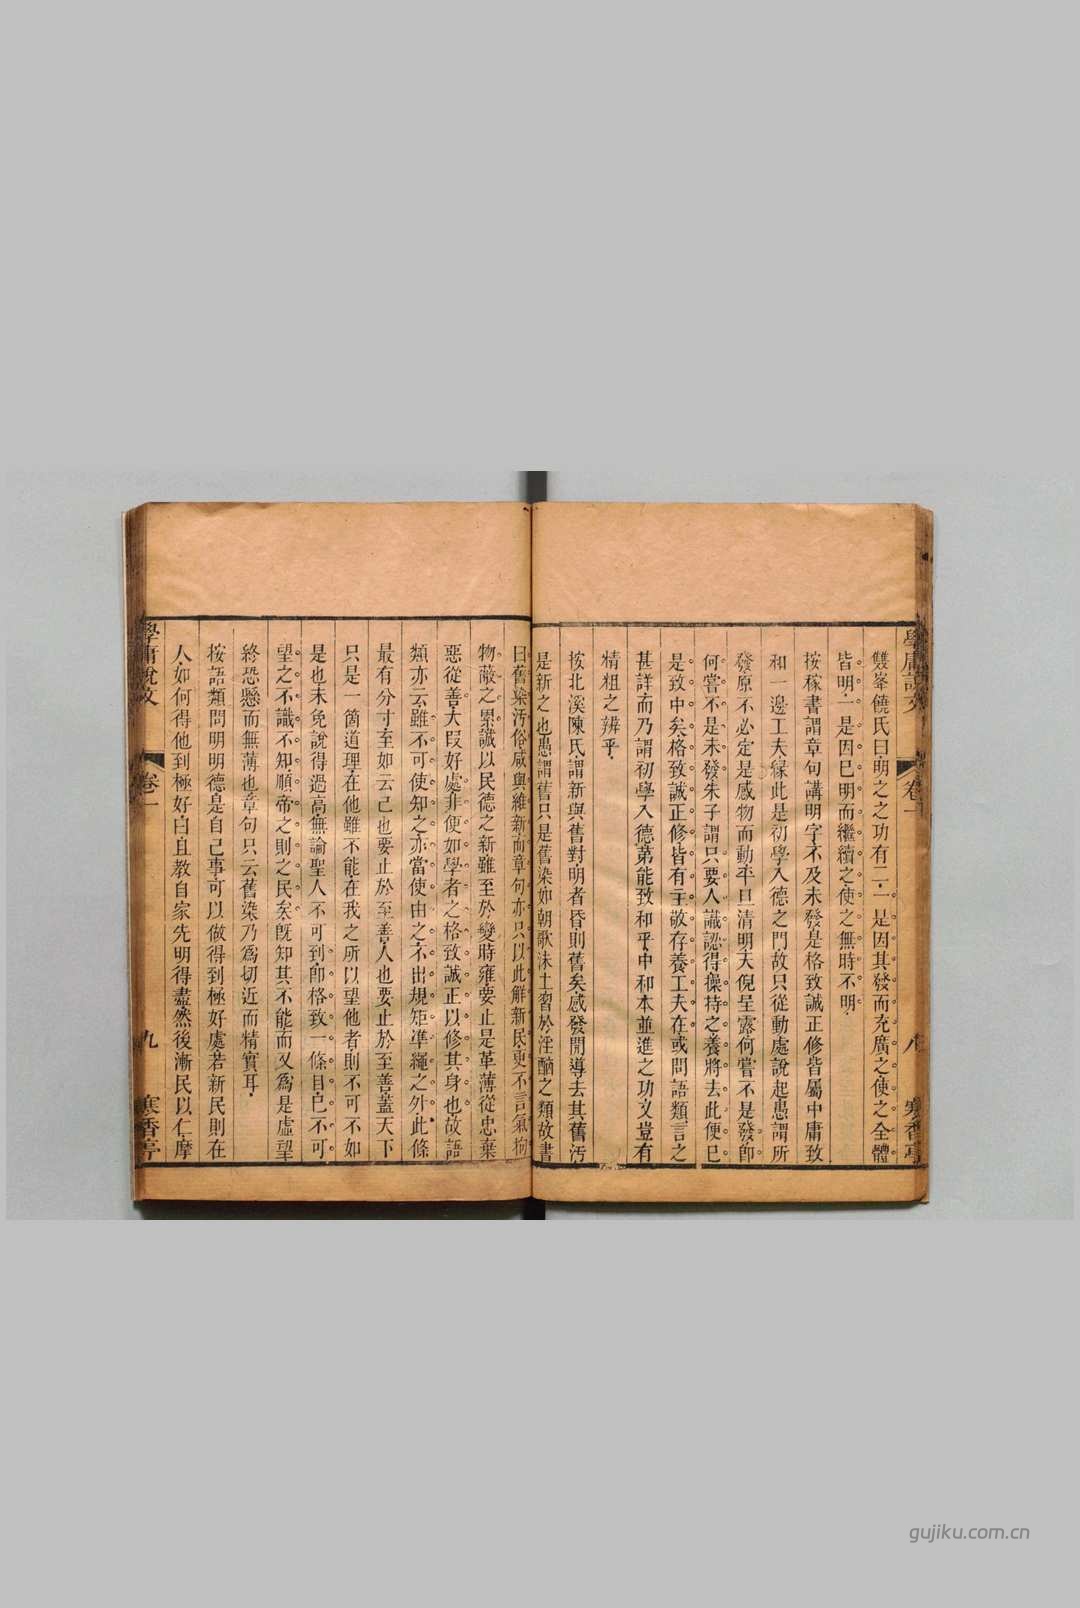 雙峯饒氏曰明之之功有二一是因其發而充廣之使之全體
皆明一是因已明而繼續之使之無時不明
按稼書謂章句講明字不及未發是格致誠正修皆屬中庸致
和一邊工夫緣此是初學入德之門故只從動處說起愚謂所
發原不必定是感物而動平旦清明天倪呈露何嘗不是發卽
何嘗不是未發朱子謂只要人識認得操持之養將去此便已
是致中矣格致誠正修皆有主敬存養工夫在或問語類言之
甚詳而乃謂初學入德第能致和乎中和本並進之功又豈有
精粗之辨乎
按北溪陳氏謂新與舊對明者昏則舊矣感發開導去其舊汚
是新之也愚謂舊只是舊染如朝歌沬土習於淫酗之類故書
曰舊染汚俗咸與維新而章句亦只以此解新民更不言氣拘
物蔽之累誠以民德之新雖至於變時雍要止是革薄從忠棄
惡從善大段好處非便如學者之格致誠正以修其身也故語
類亦云雖不可使知之亦當使由之不出規矩準繩之外此條
最有分寸至如云己也要止於至善人也要止於至善蓋天下
只是一箇道理在他雖不能在我之所以望他者則不可不如
是也未免說得過高無論聖人不可到卽格致一條目已不可
望之不識不知順帝之則之民矣旣知其不能而又爲是虛望
終恐懸而無薄也章句只云舊染乃爲切近而精實耳
按語類問明明德是自己事可以做得到極好處若新民則在
人如何得他到極好曰且教自家先明得盡然後漸民以仁摩
學庸說文
卷一
九
寒香亭